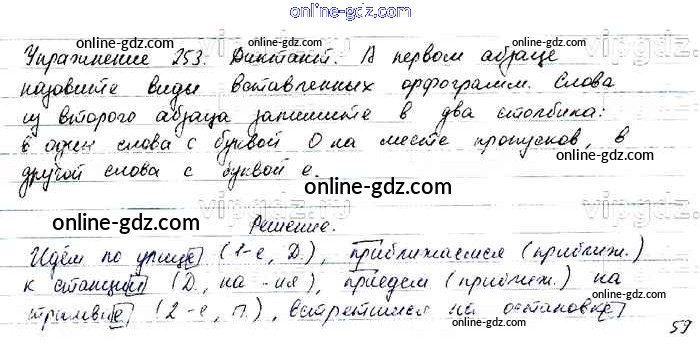 online-gdz.com
Упражнение 253. Диктант. А первом абзаце
online-gdz.com online-gdz.com
назовите виды вставленных орфограмм. Слова
из второго абзаца запишите в два столбика:
в один слова с буквой О на месте пропусков, в
другой слова с буквой е.
online-gdz.com
vipgdz.
online-gdz.com
Решение.
Идём по улице (1-е, Д.), приближаемся (приближ.)
online-gdz.com
к станции (Д., на -ия), приедем (приближ.) на
трамвае (2-е, П.), встретимся на остановке
online-gdz.com
59